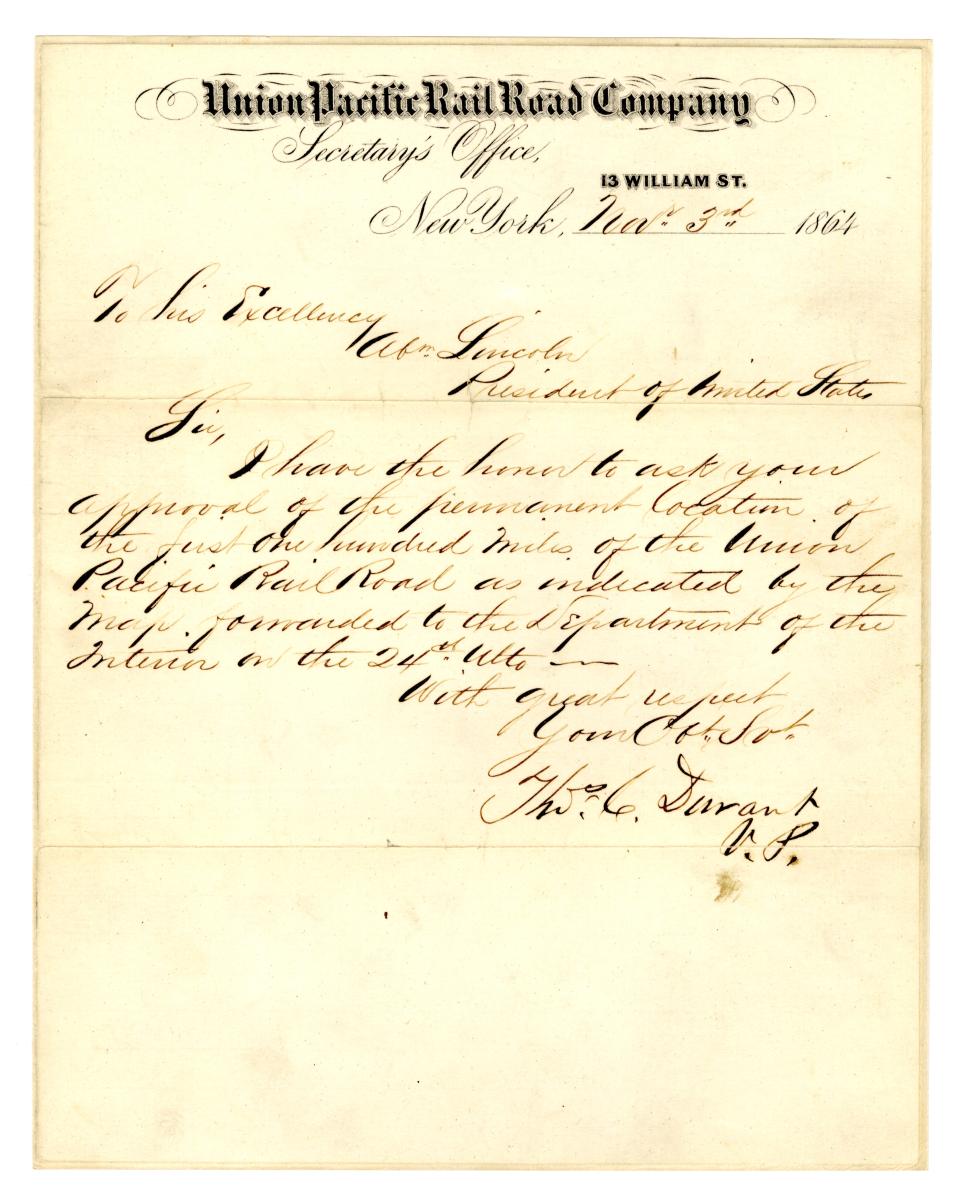 Union Pacific Rail Road Company
Secretary's Office,
13 WILLIAM ST.
New York, Novr 3rd 1864
To his Excellency
Abm Lincoln
President of United States
Sir,
I have the honor to ask your
approval of the permanent location of
the first one hundred Miles of the Union
Pacific Rail Road as indicated by the
Map forwarded to the Department of the
Interior on the 24th Ulto —
With great respect
Your Obt. Svt.
Thos. C. Durant
V. P.